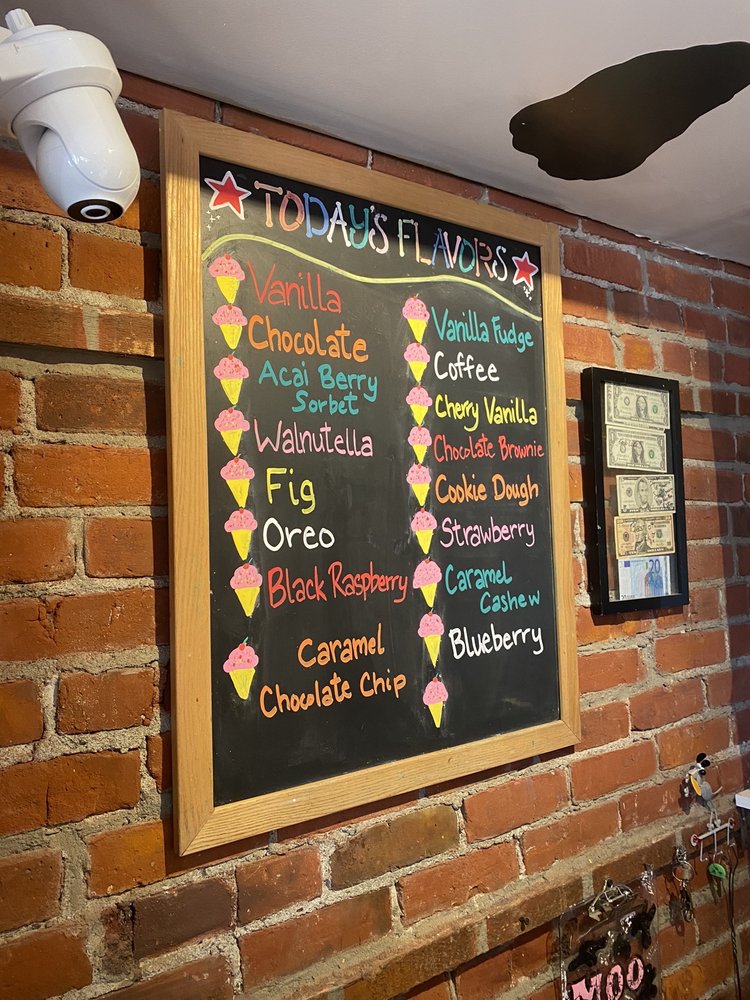 TODAY'S FLAVORS
Vanilla
Chocolate
Acai Berry
Sorbet
Walnutella
Fig
Oreo
Black Raspberry
Caramel
Chocolate Chip
Vanilla Fudge
Coffee
Cherry Vanilla
Chocolate Brownie
Cookie Dough
Strawberry
Caramel
Cashew
Blueberry
20
MOO